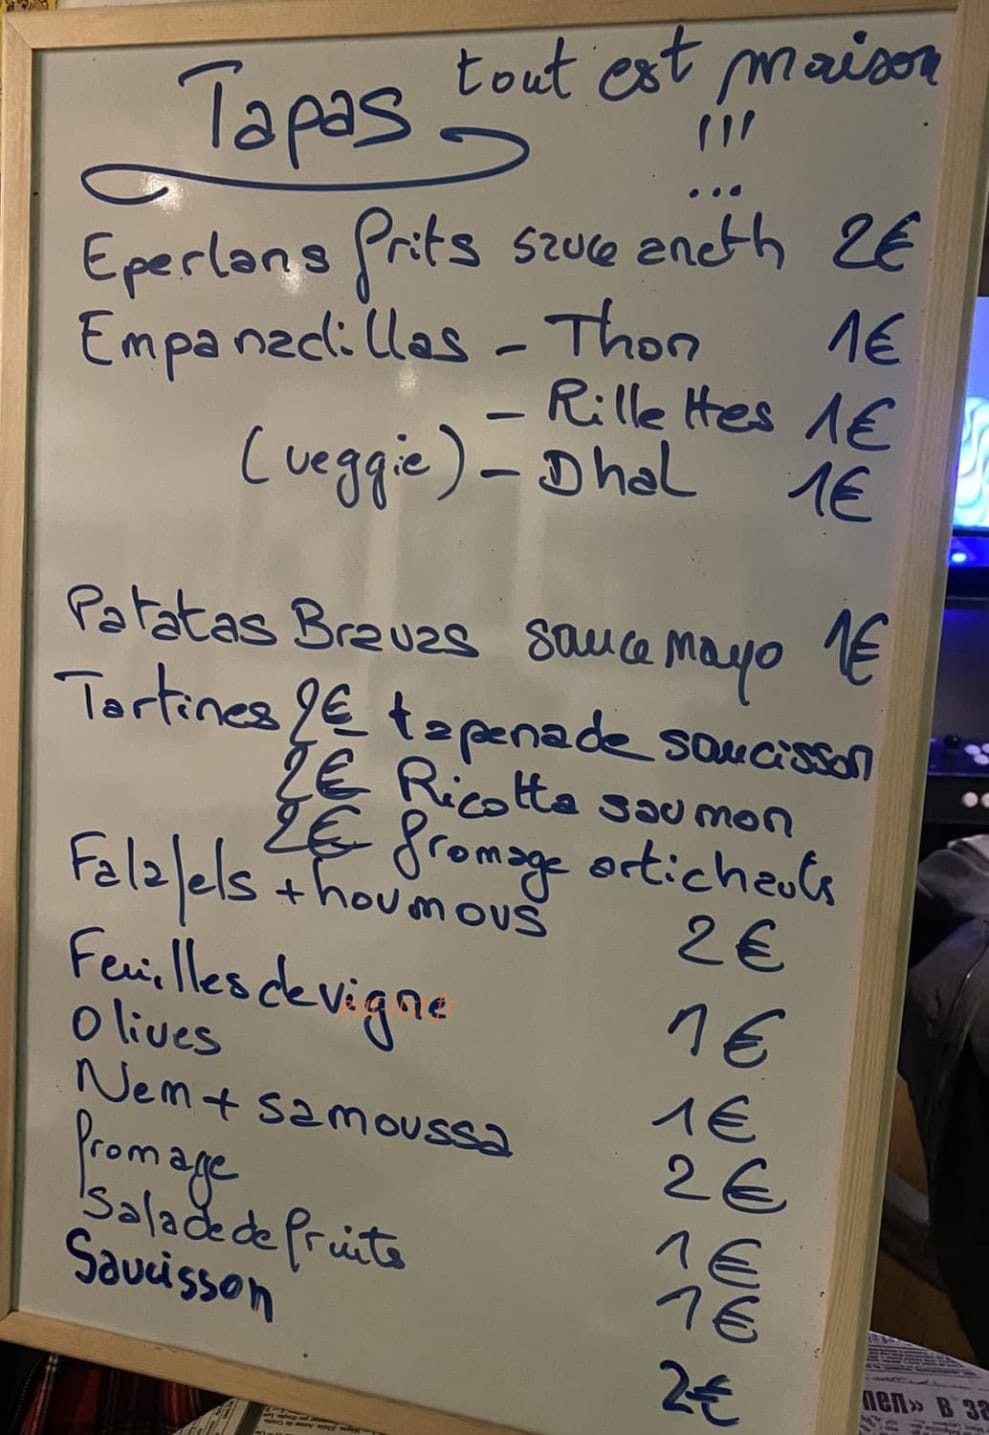 Tapas tout est maison
!!!
...
Eperlans frits sauce aneth 2€
Empanadillas - Thon 1€
- Rillettes 1€
(veggie) - Dhal 1€
Patatas Bravas sauce mayo 1€
Tartines 2€ tapenade saucisson
2€ Ricotta saumon
2€ fromage artichauts
Falafels + houmous 2€
Feuilles de vigne 1€
Olives 1€
Nem + samoussa 2€
fromage 1€
Salade de fruits 1€
Saucisson 2€
лел» в за